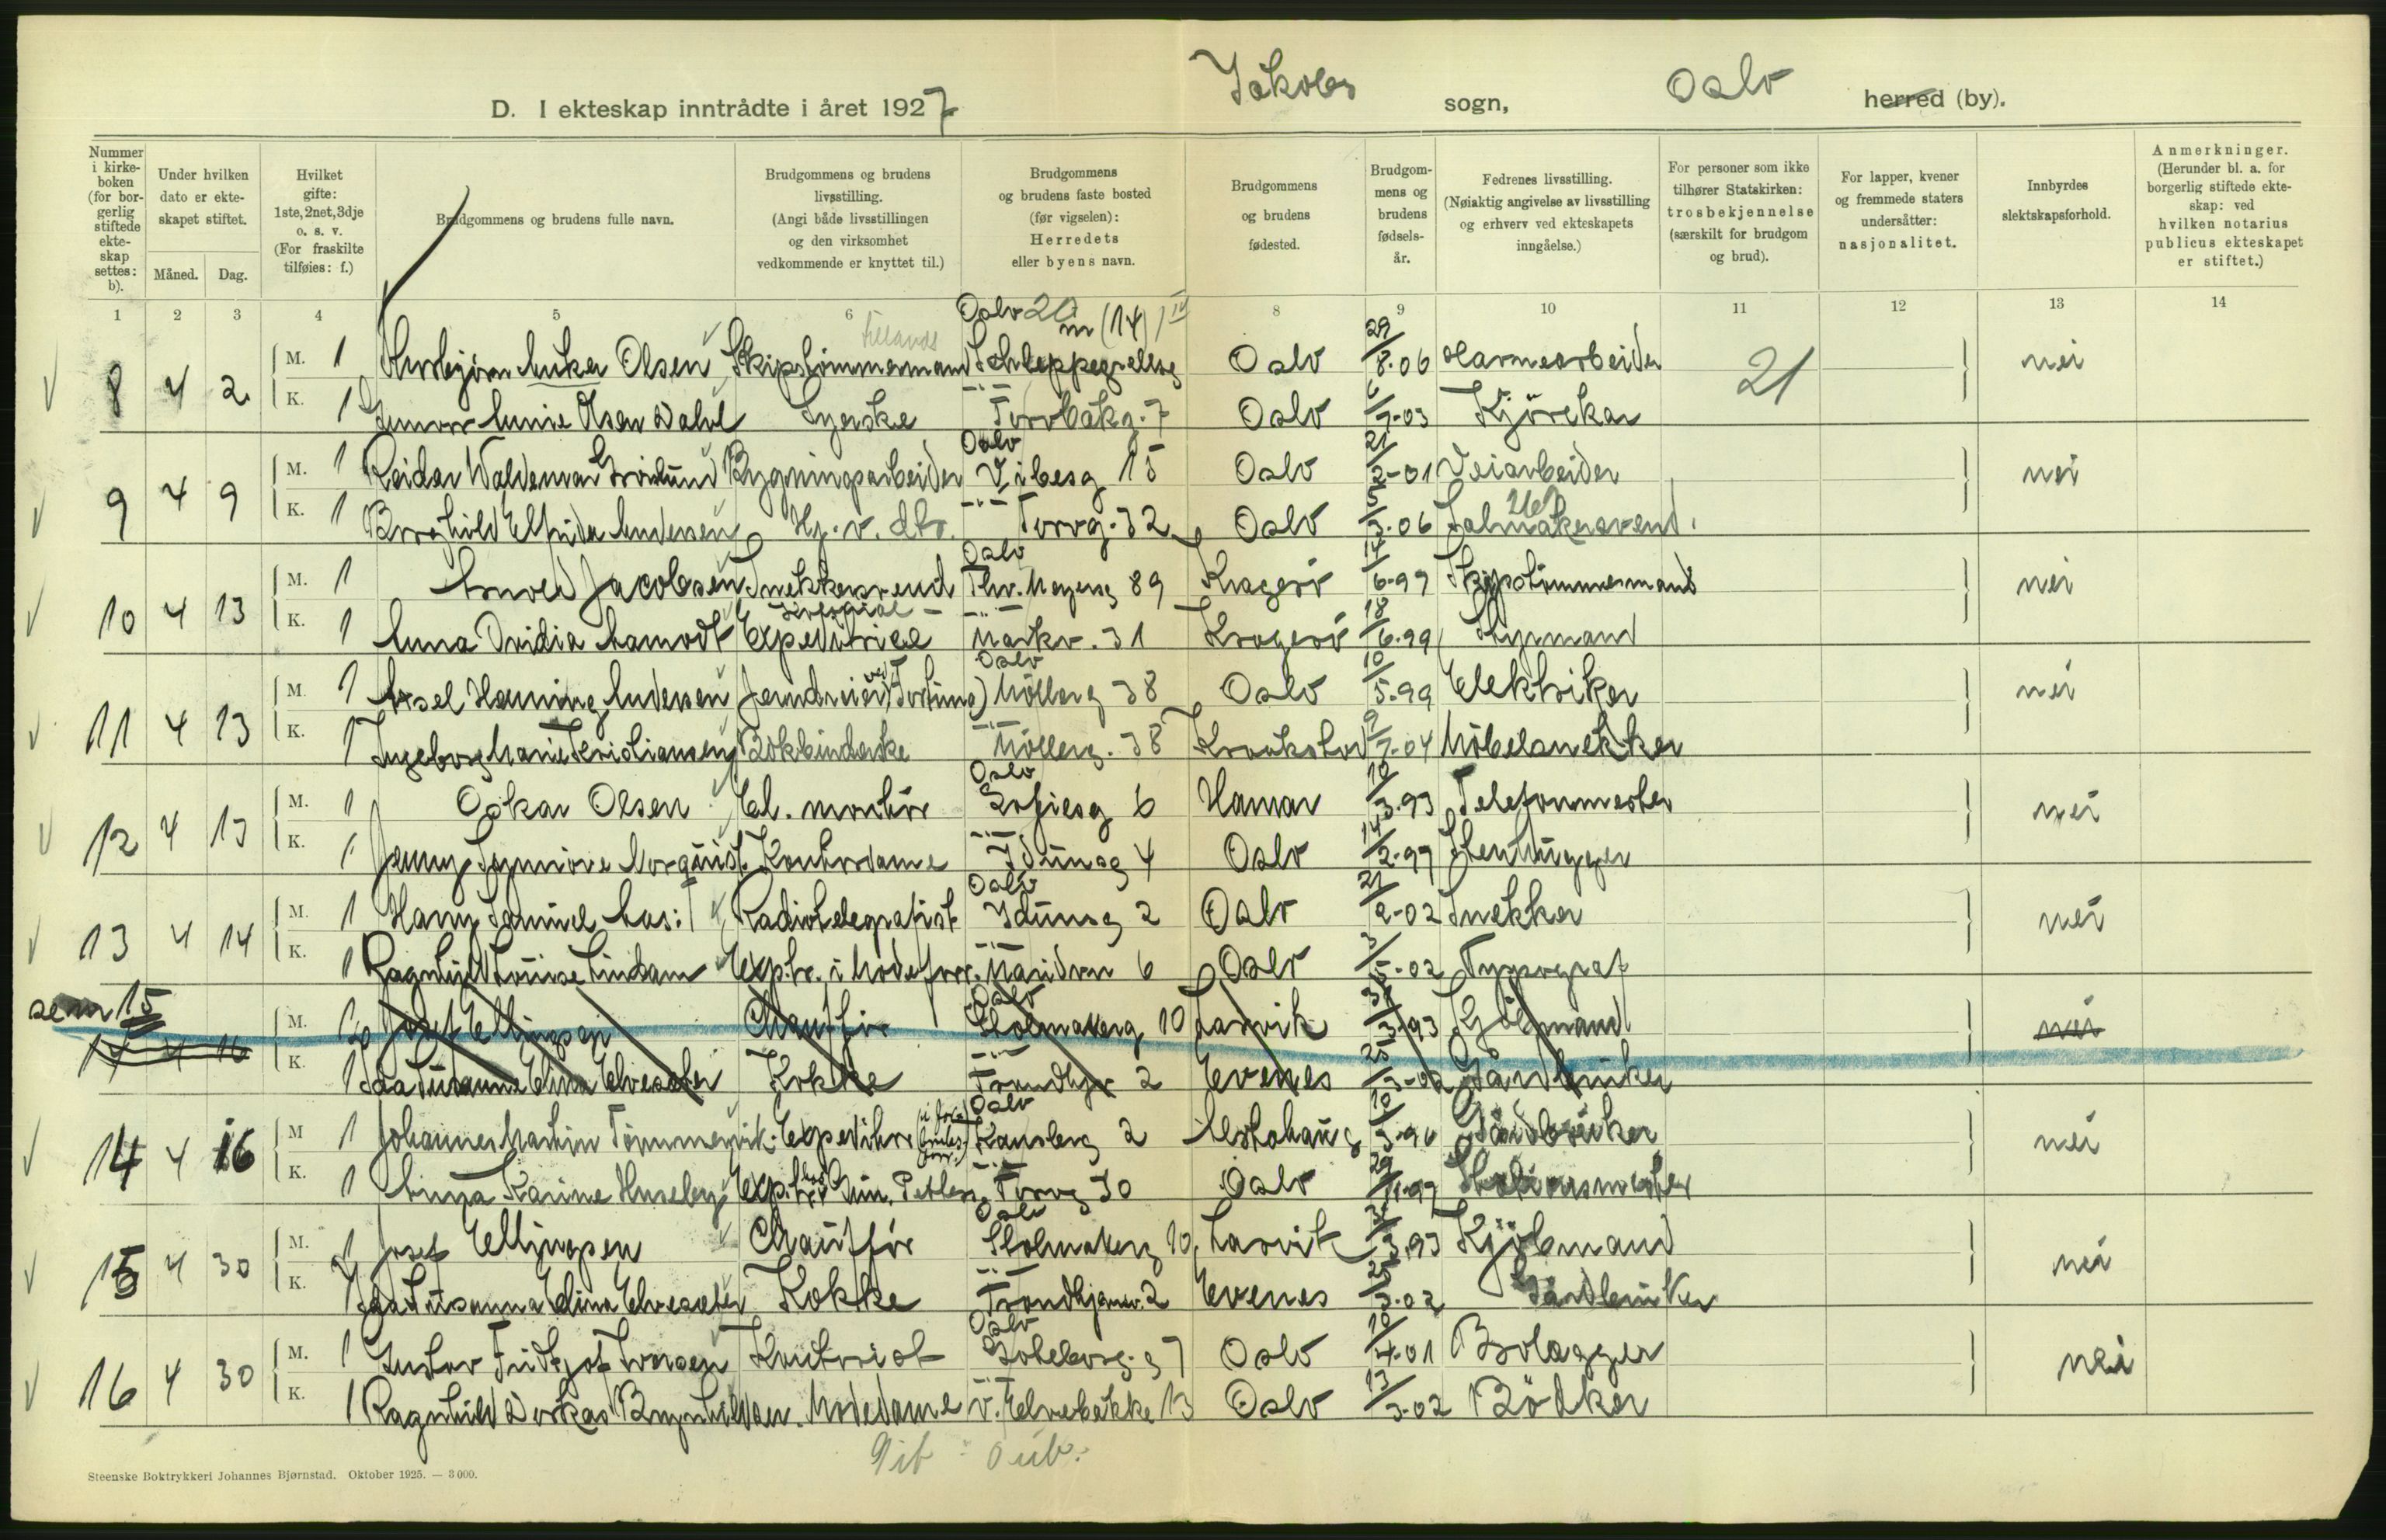 Jakobs sogn, Oslo herred (by).
D. I ekteskap inntrådte i året 1927
Nummer i kirkeboken (for borgerlig stiftede ekteskap settes: b).
Under hvilken dato er ekteskapet stiftet.
Måned. Dag.
Hvilket gifte: 1ste, 2net, 3dje o. s. v. (For fraskilte tilføies: f.)
Brudgommens og brudens fulle navn.
Brudgommens og brudens livsstilling. (Angi både livsstillingen og den virksomhet vedkommende er knyttet til.)
Brudgommens og brudens faste bosted (før vigselen): Herredets eller byens navn.
Brudgommens og brudens fødested.
Brudgommens og brudens fødselsår.
Fedrenes livsstilling. (Nøiaktig angivelse av livsstilling og erhverv ved ekteskapets inngåelse.)
For personer som ikke tilhører Statskirken: trosbekjennelse (særskilt for brudgom og brud).
For lapper, kvener og fremmede staters undersåtter: nasjonalitet.
Innbyrdes slektskapsforhold.
Anmerkninger. (Herunder bl. a. for borgerlig stiftede ekteskap: ved hvilken notarius publicus ekteskapet er stiftet.)
1 2 3 4 5 6 7 8 9 10 11 12 13 14
8 4 2 M. 1 Olsen Skipstømmermann Oslo Schleppegrellsg Oslo 29/8.06 Garnearbeider 21 nei
K. 1 Gunvor Annie Olsen Dahl Syerske Torvbakg. 7 Oslo 6/7-03 Kjørekar
9 4 9 M. 1 Reidar Waldemar Grønlund Bygningsarbeider Oslo Vibesg 15 Oslo 21/2-01 Veiarbeider nei
K. 1 Borghild Elfrida Andersen Hj. v. dtr. Torvg. 32 Oslo 5/3.06 Salmakersvend
10 4 13 M. 1 Arnold Jacobsen Snekkersvend Oslo Thv. Meyersg 89 Kragerö 14/6-97 Skipstømmermand nei
K. 1 Anna Ovidia Aamodt Expeditrice Markv. 31 Kragerö 18/6.99 Styrmand
11 4 13 M. 1 Axel Henning Andersen Jerndreier Oslo Möllerg 38 Oslo 10/5.99 Elektriker nei
K. 1 Ingeborg Marie Kristiansen Bokbinderske Möllerg. 38 9/7-04 Möbelsnekker
12 4 13 M. 1 Oskar Olsen El. montör Oslo Sofiesg 6 Hamar 10/3.93 Telefonmester nei
K. 1 Jenny Synnöve Norquist Kontordame Idunsg 4 Oslo 14/2-97 Stenhugger
13 4 14 M. 1 Harry Samuel Radiotelegrafist Oslo Idunsg 2 Oslo 21/2-02 Snekker nei
K. 1 Ragnhild Louise Lindam Exptr. i Modeforr. Maridvn 6 Oslo 3/5-02 Typograf
sem 15
14 4 16 M. Josef Ellingsen Chaufför Oslo Stolmakerg 10 Larvik 3/3.93 Kjöbmand nei
K. 1 Ida Susanna Elina Elvesæter Kokke Trondhjv 2 Evenes 25/3-02 Gårdbruker
14 4 16 M 1 Johannes Martin Tömmervik Expeditör Oslo Kanslerg 2 Alstahaug Gårdbruker nei
K. 1 Karine Huseby Torvg 30 Oslo Stationsmester
15 4 30 M. 1 Josef Ellingsen Chauffør Oslo Stolmakerg 10 Larvik 3/3.93 Kjöbmand nei
K. 1 Ida Susanna Elina Elvesæter Kokke Trondhjemsv. 2 Evenes 25/3.02 Gårdbruker
16 4 30 M. 1 Gustav Fridtjof Iversen Kontorist Oslo Göteborg.g 7 Oslo 10/4.01 Bölagger nei
K. 1 Ragnhild Dorkas Brynhildsen Modedame v. Elvebakke 13 Oslo 13/3-02 Bödker
Steenske Boktrykkeri Johannes Bjørnstad. Oktober 1925. — 3 000.